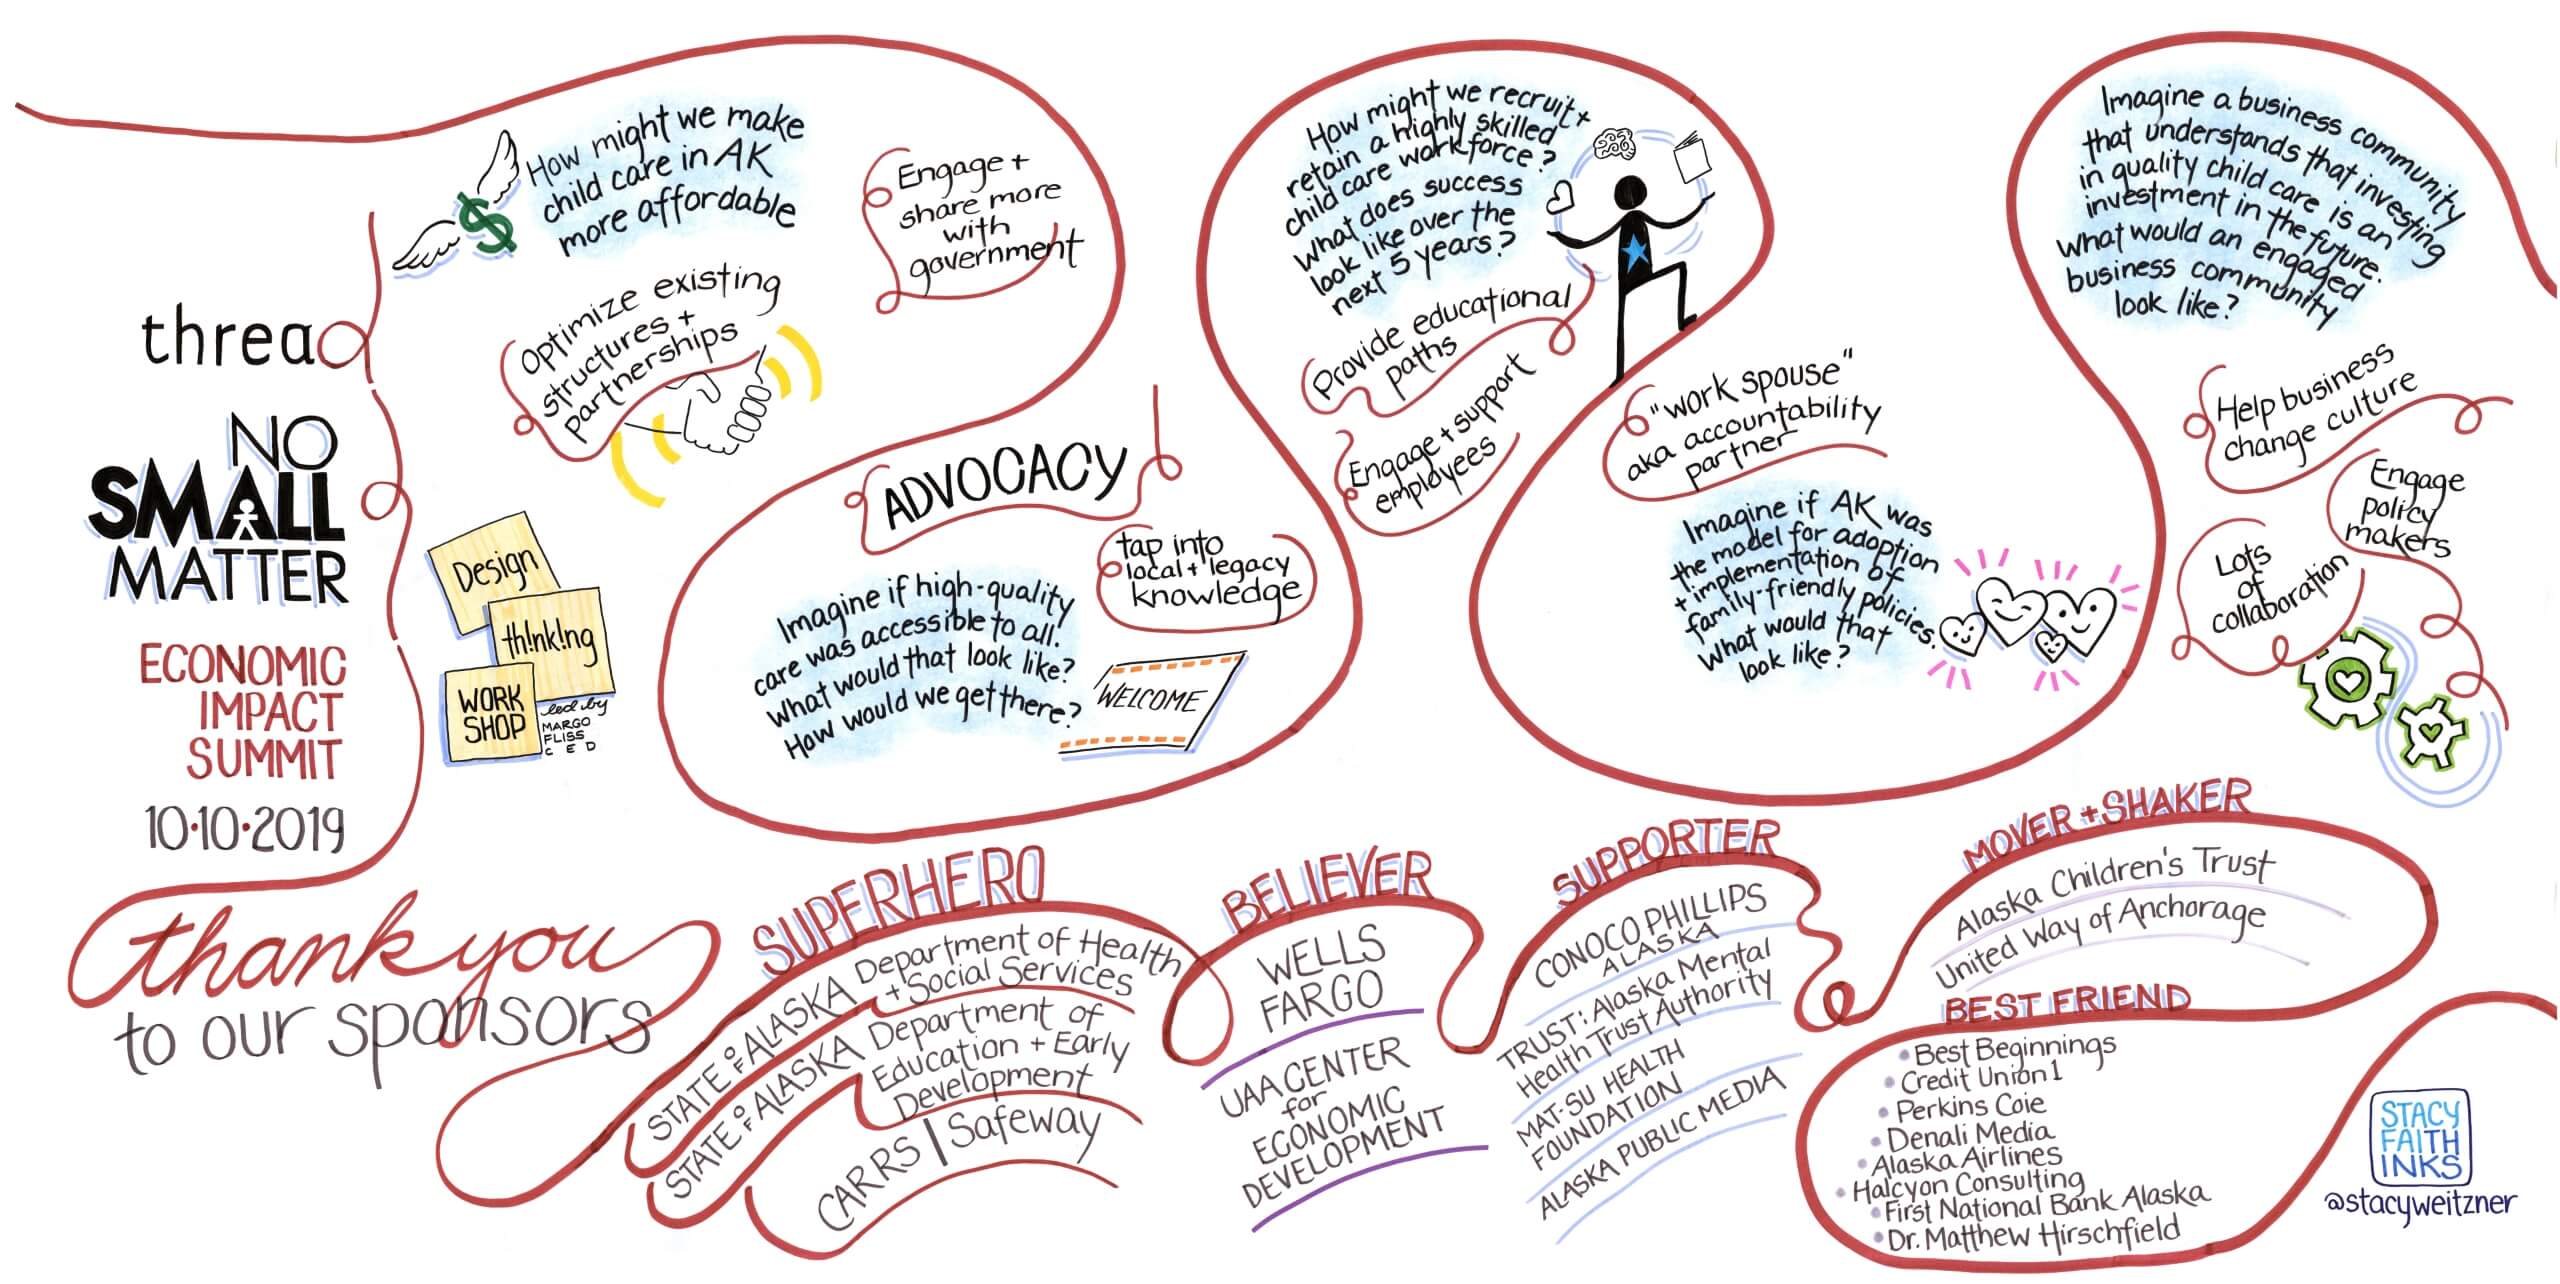 thread
NO
SMALL
MATTER
ECONOMIC
IMPACT
SUMMIT
10·10·2019
$
How might we make
child care in AK
more affordable
Engage +
share more
with
government
Optimize existing
structures +
partnerships
Design
th!nk!ng
WORK
SHOP
led by
MARGO
FLISS
CED
ADVOCACY
tap into
local + legacy
knowledge
Imagine if high-quality
care was accessible to all.
What would that look like?
How would we get there?
WELCOME
How might we recruit +
retain a highly skilled
child care workforce?
What does success
look like over the
next 5 years?
Provide educational
paths
Engage + support
employees
"work spouse"
aka accountability
partner
Imagine if AK was
the model for adoption
+ implementation of
family-friendly policies.
What would that
look like?
Imagine a business community
that understands that investing
in quality child care is an
investment in the future.
What would an engaged
business community
look like?
Help business
change culture
Engage
policy
makers
Lots
of
collaboration
thank you
to our sponsors
SUPERHERO
STATE OF ALASKA Department of Health
+ Social Services
STATE OF ALASKA Department of
Education + Early
Development
CARRS | Safeway
BELIEVER
WELLS
FARGO
UAA CENTER
for
ECONOMIC
DEVELOPMENT
SUPPORTER
CONOCO PHILLIPS
ALASKA
TRUST: Alaska Mental
Health Trust Authority
MAT-SU HEALTH
FOUNDATION
ALASKA PUBLIC MEDIA
MOVER + SHAKER
Alaska Children's Trust
United Way of Anchorage
BEST FRIEND
• Best Beginnings
• Credit Union 1
• Perkins Coie
• Denali Media
• Alaska Airlines
• Halcyon Consulting
• First National Bank Alaska
• Dr. Matthew Hirschfield
STACY
FAITH
INKS
@stacyweitzner